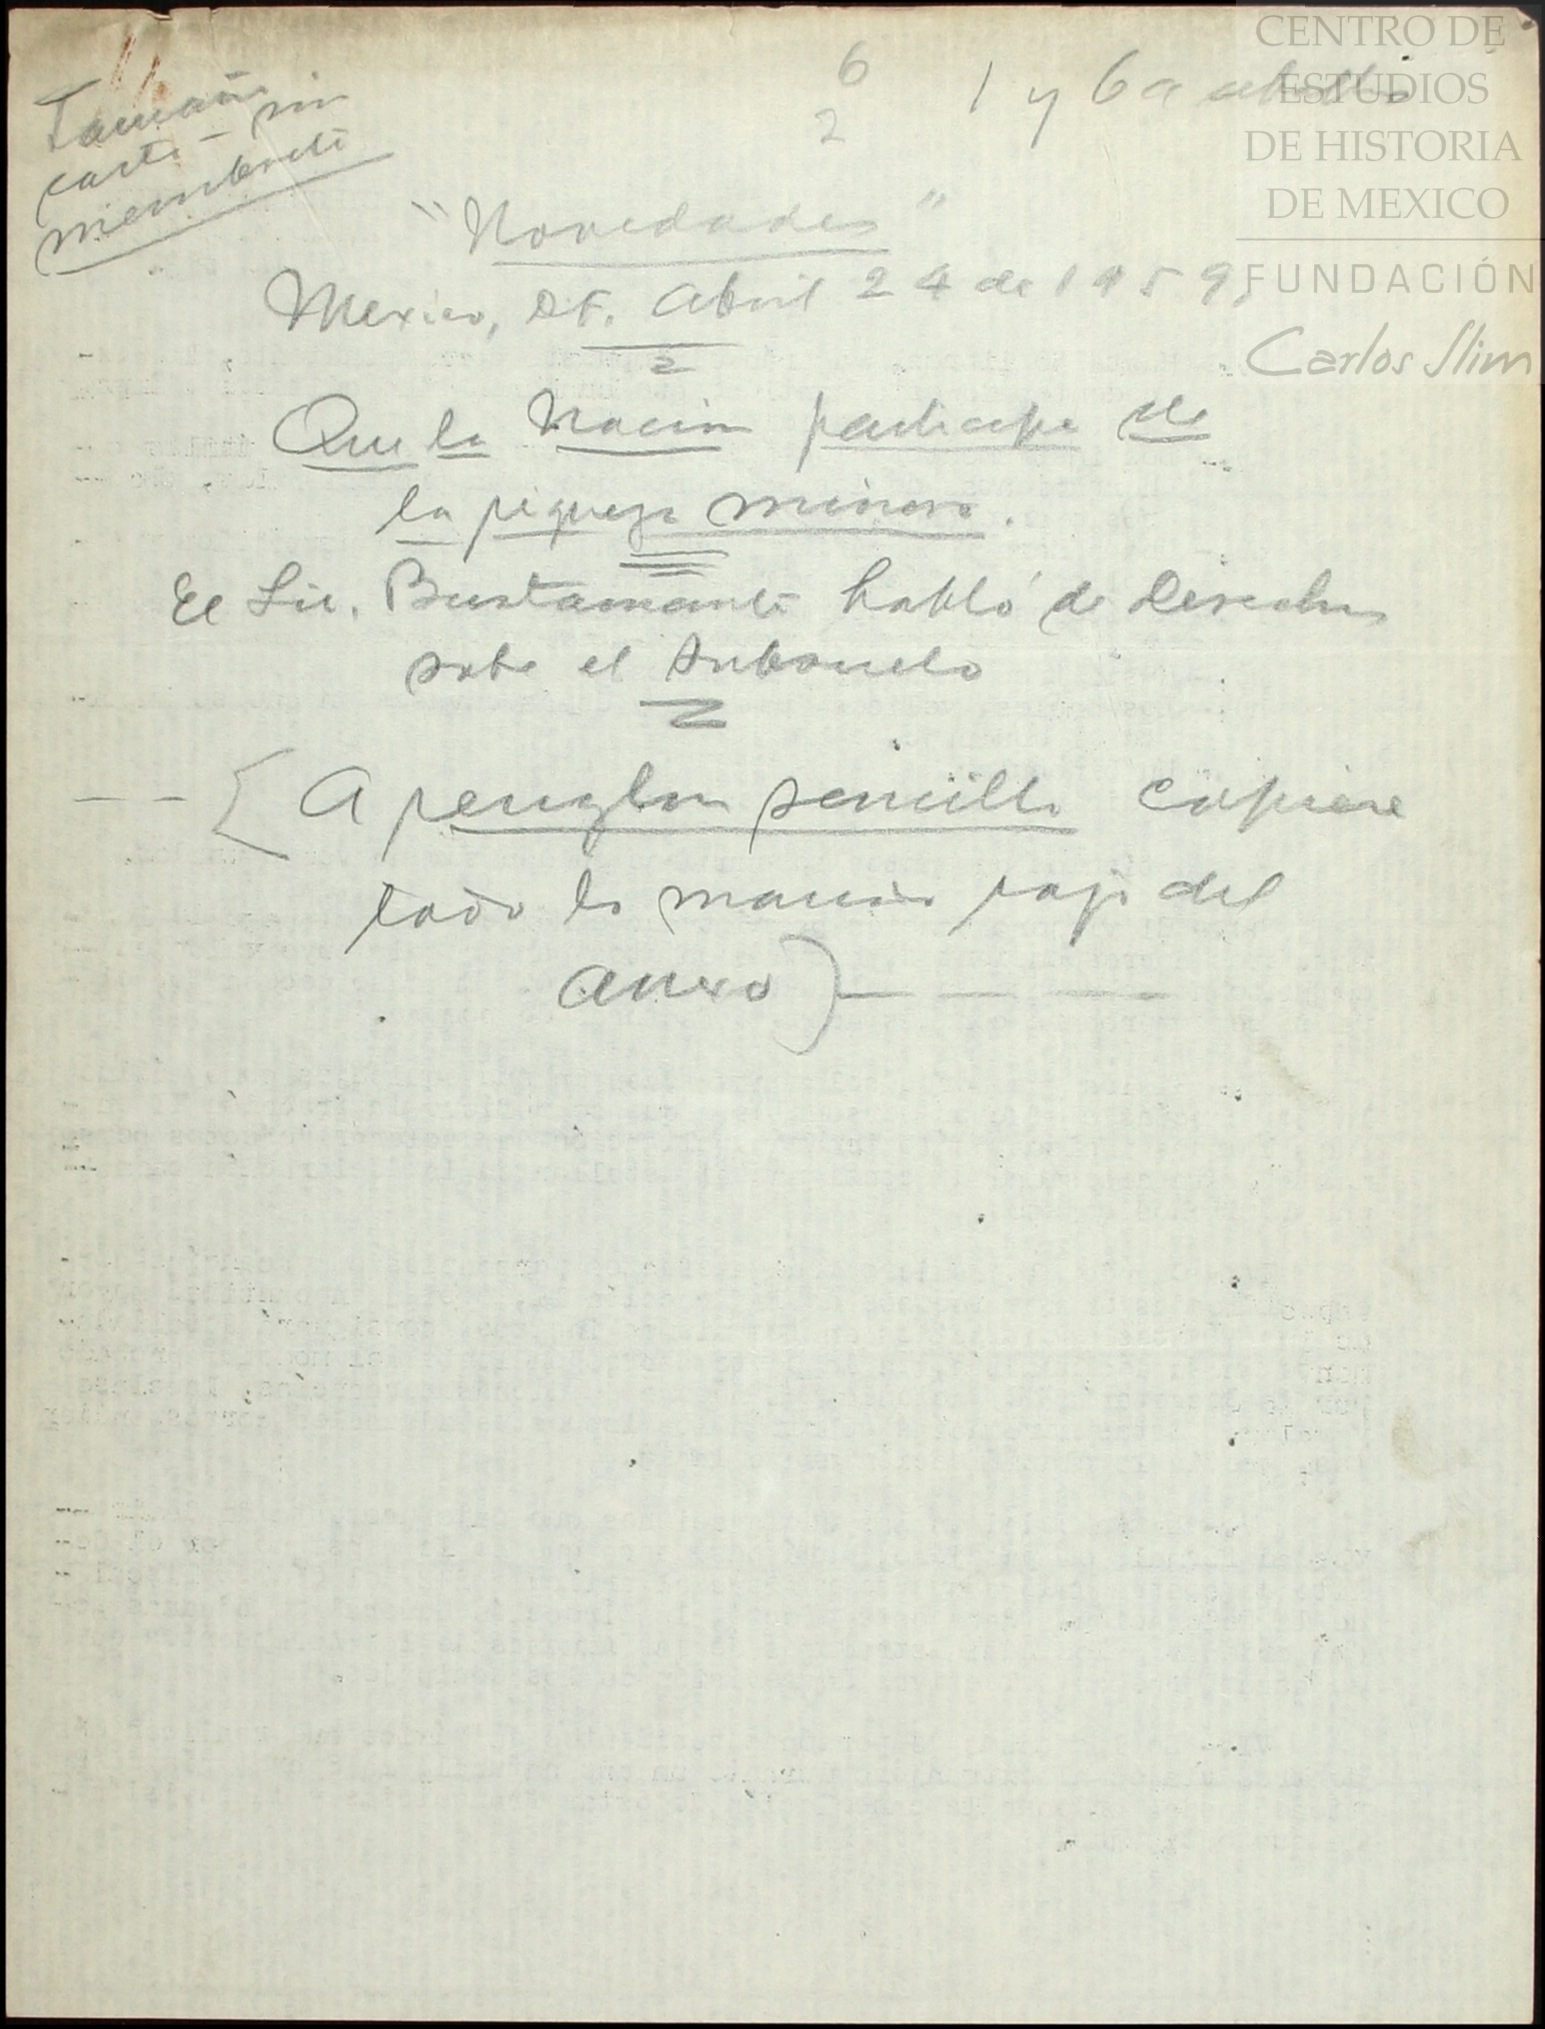 Tamaño
carta - sin
membrete
6
2
1 y 6 a
"Novedades"
Mexico, D.F. Abril 24 de 1959,
Que la Nación participe de
la riqueza minera.
El Lic. Bustamante habló de Derechos
sobre el Subsuelo
A renglon sencillo copiese
todo lo marcado rojo del
anexo)
CENTRO DE
ESTUDIOS
DE HISTORIA
DE MEXICO
FUNDACIÓN
Carlos Slim